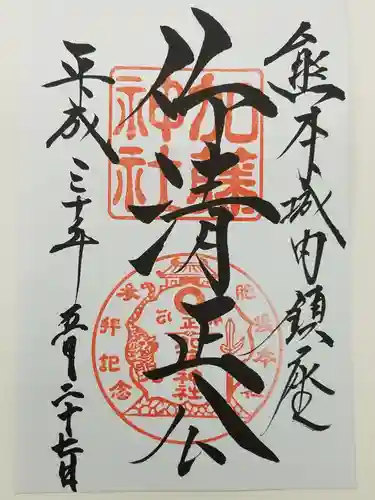 熊本城内鎮座
仰清正公
平成三十年五月二十七日
加藤神社
参拝記念